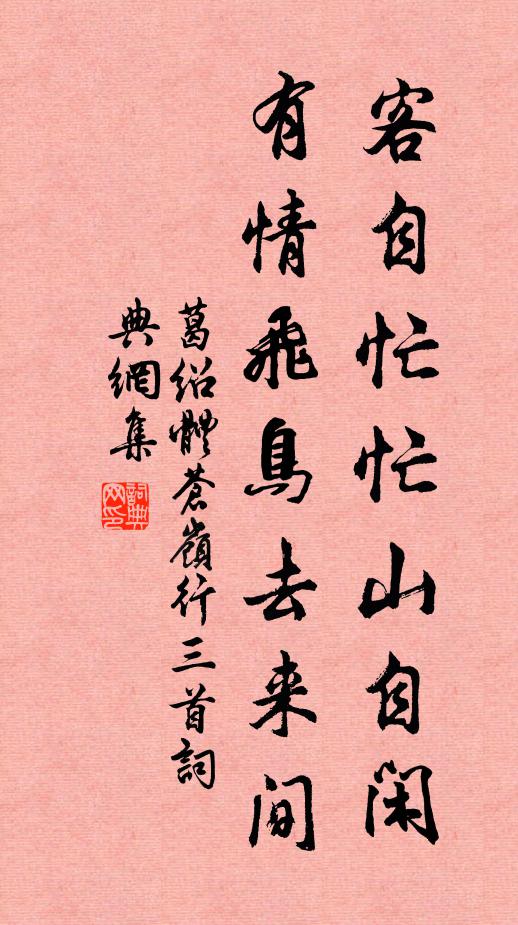 客自忙忙山自閑
有情飛鳥去来間
葛紹體蒼嶺行三首詞
典網集
詞典
网印